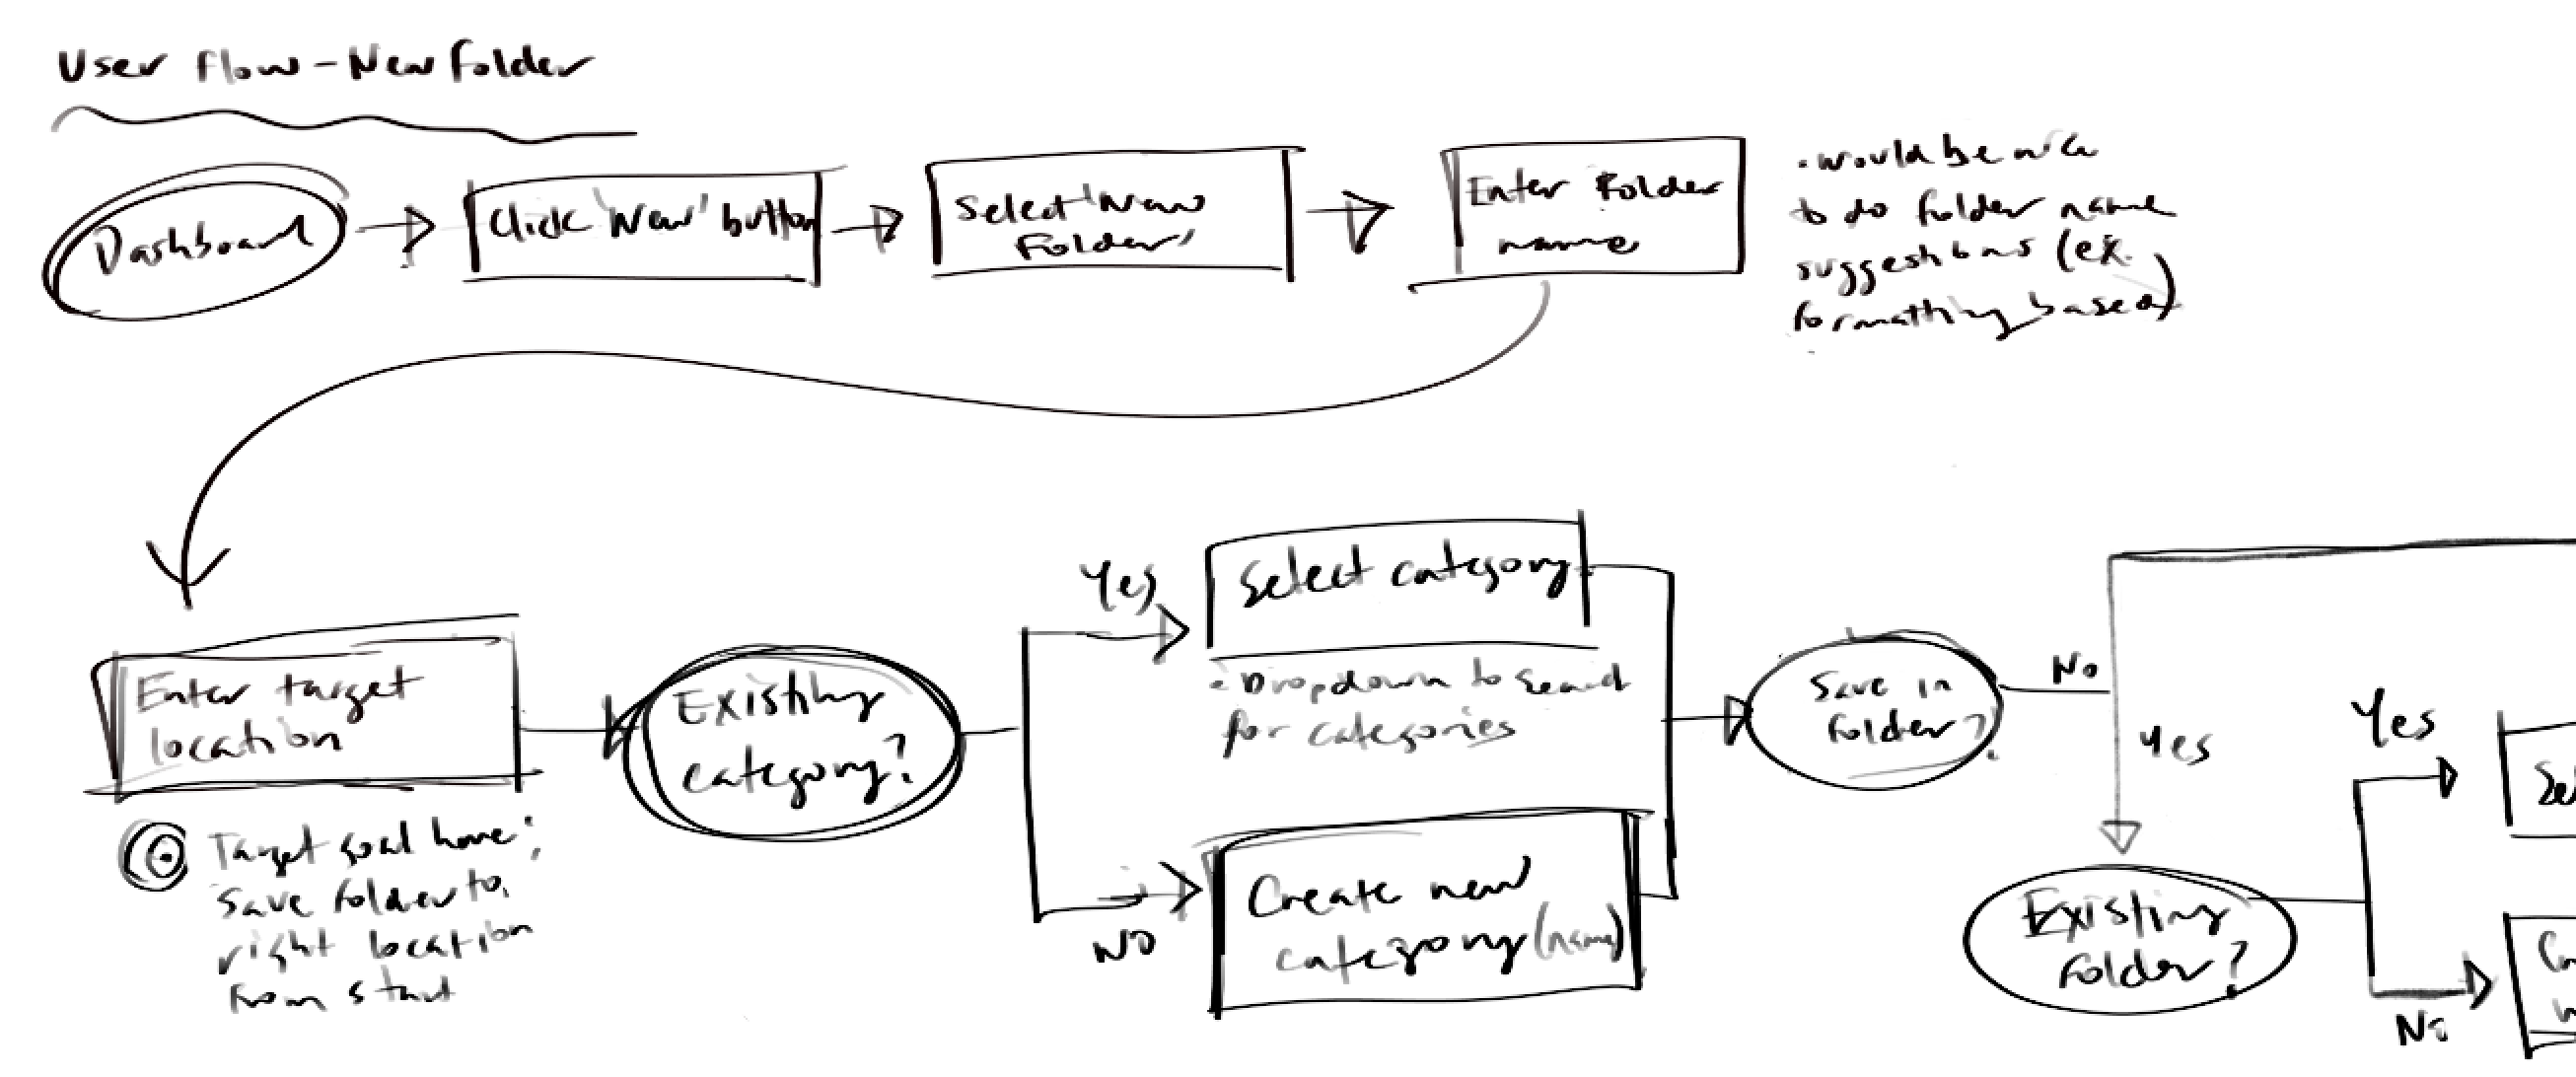 User Flow - New Folder
Dashboard
Click 'New' button
Select 'New
Folder'
Enter Folder
name
• would be nice
to do folder name
suggestions (ex.
formatting based)
Enter target
location
Target goal here:
Save folder to
right location
from start
Existing
category?
Yes
Select category
• Dropdown to search
for categories
No
Create new
category (name)
Save in
folder?
No
Yes
Existing
Folder?
Yes
Sel
No